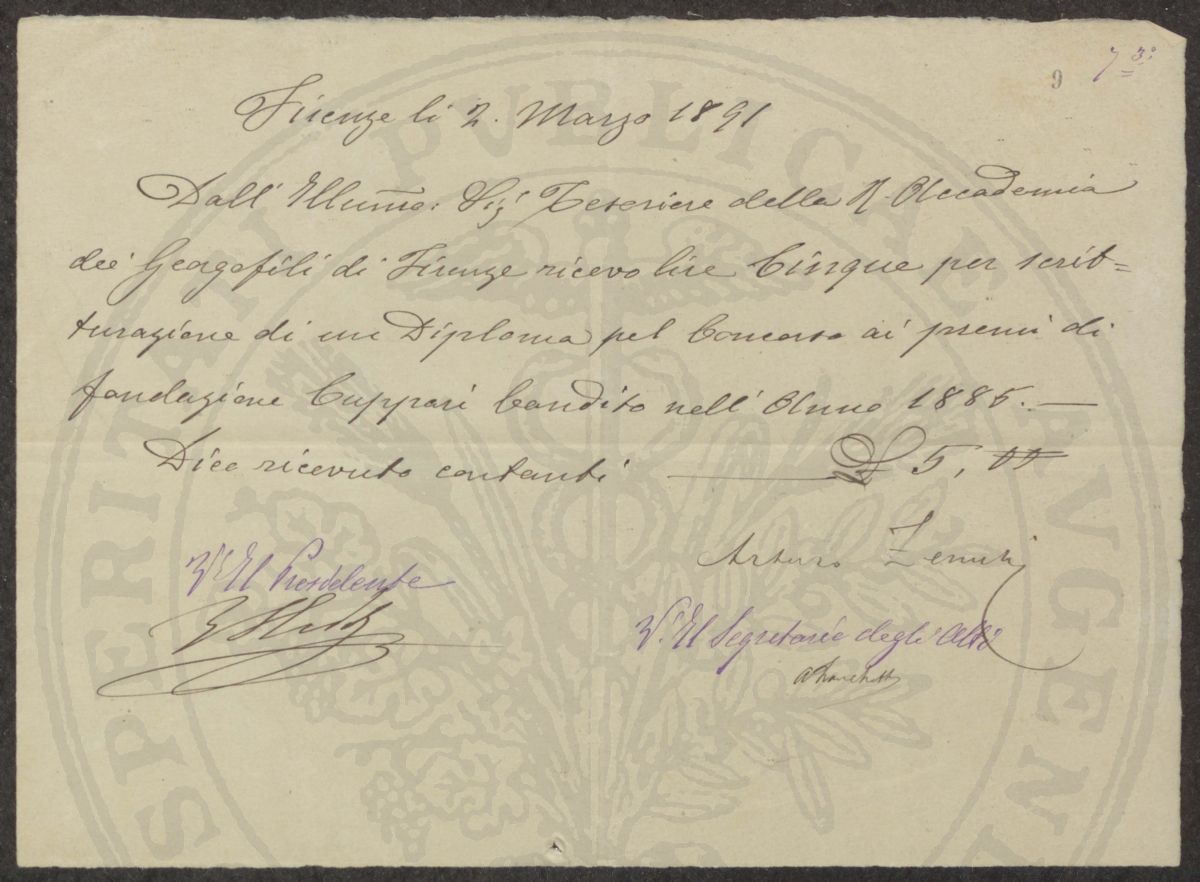 7 3°
9
Firenze li 2. Marzo 1891
Dall' Illumo: Sig Tesoriere della R. Accademia
dei Georgofili di Firenze ricevo lire Cinque per scrit=
turazione di un Diploma pel Concorso ai premi di
fondazione Cuppari bandito nell' Anno 1885. —
Dico ricevuto contanti — £ 5,00
Arturo
V° Il Presidente
V. Il Segretario degli Atti
PROSPERITATI PVBLICAE AVGENDAE